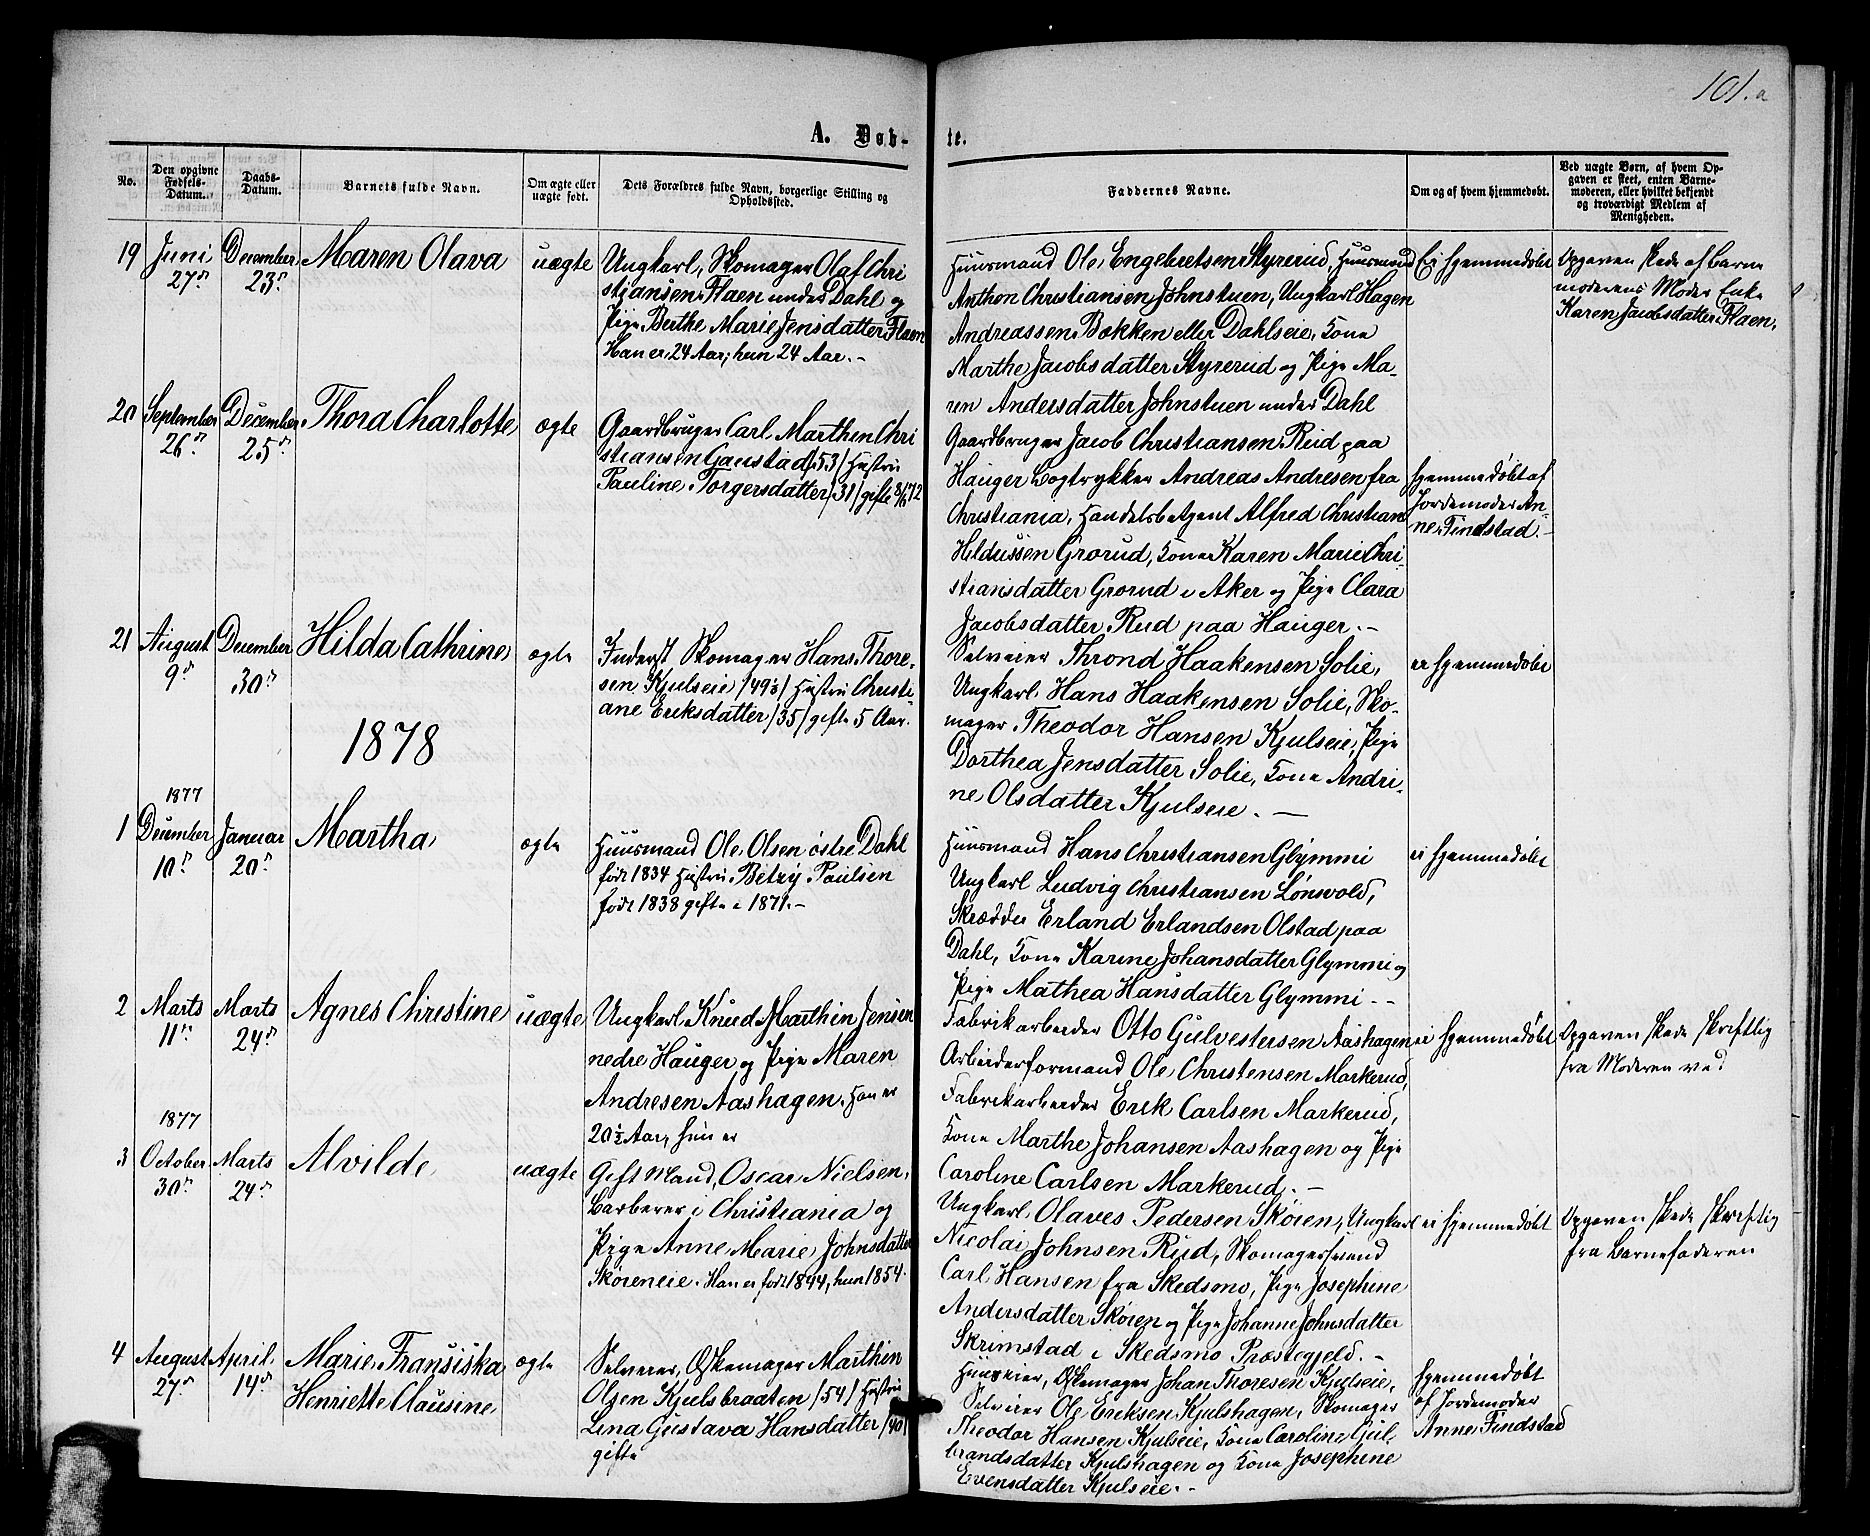 101.a
A. Døb-
te.
No.
Den opgivne
Fødsels-
Datum.
Daabs-
Datum.
Barnets fulde Navn.
Om ægte eller
uægte født.
Dets Forældres fulde Navn, borgerlige Stilling og
Opholdssted.
Faddernes Navne.
Om og af hvem hjemmedøbt.
Ved uægte Børn, af hvem Op-
gaven er skeet, enten Barne-
moderen, eller hvilket bekjendt
og troværdigt Medlem af
Menigheden.
19
Juni
27de
December
23de
Maren Olava
uægte
Ungkarl, Skomager Olaf Chri
stiansen Flaen under Dahl og
Pige Berthe Marie Jensdatter Flaen
Han er 24 Aar, hun 24 Aar. -
Huusmand Ole Engebretsen Styrerud, Huusmand
Anthon Christiansen Johnstuen, Ungkarl Hagen
Andreassen Bakken eller Dahlseie, Kone
Marthe Jacobsdatter Styrerud og Pige Ma-
ren Andersdatter Johnstuen under Dahl
Ei hjemmedøbt
Opgaven skede af Barne
moderens Moder Enke
Karen Jacobsdatter Flaen,
20
September
26de
December
25de
Thora Charlotte
ægte
Gaardbruger Carl Marthin Chri
stiansen Gaustad /53/ Hustru
Pauline Torgersdatter /31/ gifte 72
Gaardbruger Jacob Christiansen Rud paa
Hauger Bogtrykker Andreas Andresen fra
Christiania, Handelsbetjent Alfred Christian
Hildussen Grorud, Kone Karen Marie Chri-
stiansdatter Grorud i Aker og Pige Clara
Jacobsdatter Rud paa Hauger. -
hjemmedøbt af
Jordemoder An-
ne Findstad. -
21
August
9de
December
30de
Hilda Cathrine
ægte
Inderst Skomager Hans Thore-
sen Kjulseie /49½/ Hustru Christi-
ane Eriksdatter /35/ gifte 5 Aar.
Selveier Thrond Haakensen Solie,
Ungkarl Hans Haakensen Solie, Sko-
mager Theodor Hansen Kjulseie, Pige
Dorthea Jensdatter Solie, Kone Andri-
ne Olsdatter Kjulseie. -
ei hjemmedøbt
1878
1877
1
December
10de
Januar
20de
Martha
ægte
Huusmand Ole Olsen østre Dahl
født 1834 Hustru Betzy Paulsen
født 1838 gifte i 1871. -
Huusmand Hans Christiansen Glymmi
Ungkarl Ludvig Christiansen Lønsvold,
Skrædder Erland Erlandsen Olstad paa
Dahl, Kone Karine Johansdatter Glymmi og
Pige Mathea Hansdatter Glymmi. -
ei hjemmedøbt
2
Marts
11te
Marts
24de
Agnes Christine
uægte
Ungkarl Knud Marthin Jensen
nedre Hauger og Pige Maren
Andresen Aashagen. Han er
20½ Aar, hun er
Fabrikarbeider Otto Gulvestersen Aashagen
Arbeiderformand Ole Christensen Markerud,
Fabrikarbeider Erik Carlsen Markerud,
Kone Marthe Johansen Aashagen og Pige
Caroline Carlsen Markerud. -
ei hjemmedøbt
Opgaven skede skriftlig
fra Moderen ved
1877
3
October
30de
Marts
24de
Alvilde
uægte
Gift Mand, Oscar Nielsen,
Barberer i Christiania og
Pige Anne Marie Johnsdatter
Skøieneie. Han er født 1844, hun 1854.
Ungkarl Olaves Pedersen Skøien, Ungkarl
Nicolai Johnsen Rud, Skomagersvend
Carl Hansen fra Skedsmo, Pige Josephine
Andersdatter Skøien og Pige Johanne Johnsdatter
Skrimstad i Skedsmo Præstegjeld. -
ei hjemmedøbt
Opgaven skede skriftlig
fra Barnefaderen
4
August
27de
April
14de
Marie Fransiska
Henriette Clausine
ægte
Selveier, Skomager Marthin
Olsen Kjulsbraaten /54/ Hustru
Lina Gustava Hansdatter /40/
gifte
Huuseier, Skomager Johan Thoresen Kjulseie,
Selveier Ole Eriksen Kjulshagen, Skomager
Theodor Hansen Kjulseie, Kone Caroline Gul-
brandsdatter Kjulshagen og Kone Josephine
Evensdatter Kjulseie. -
hjemmedøbt
af Jordemoder
Anne Findstad